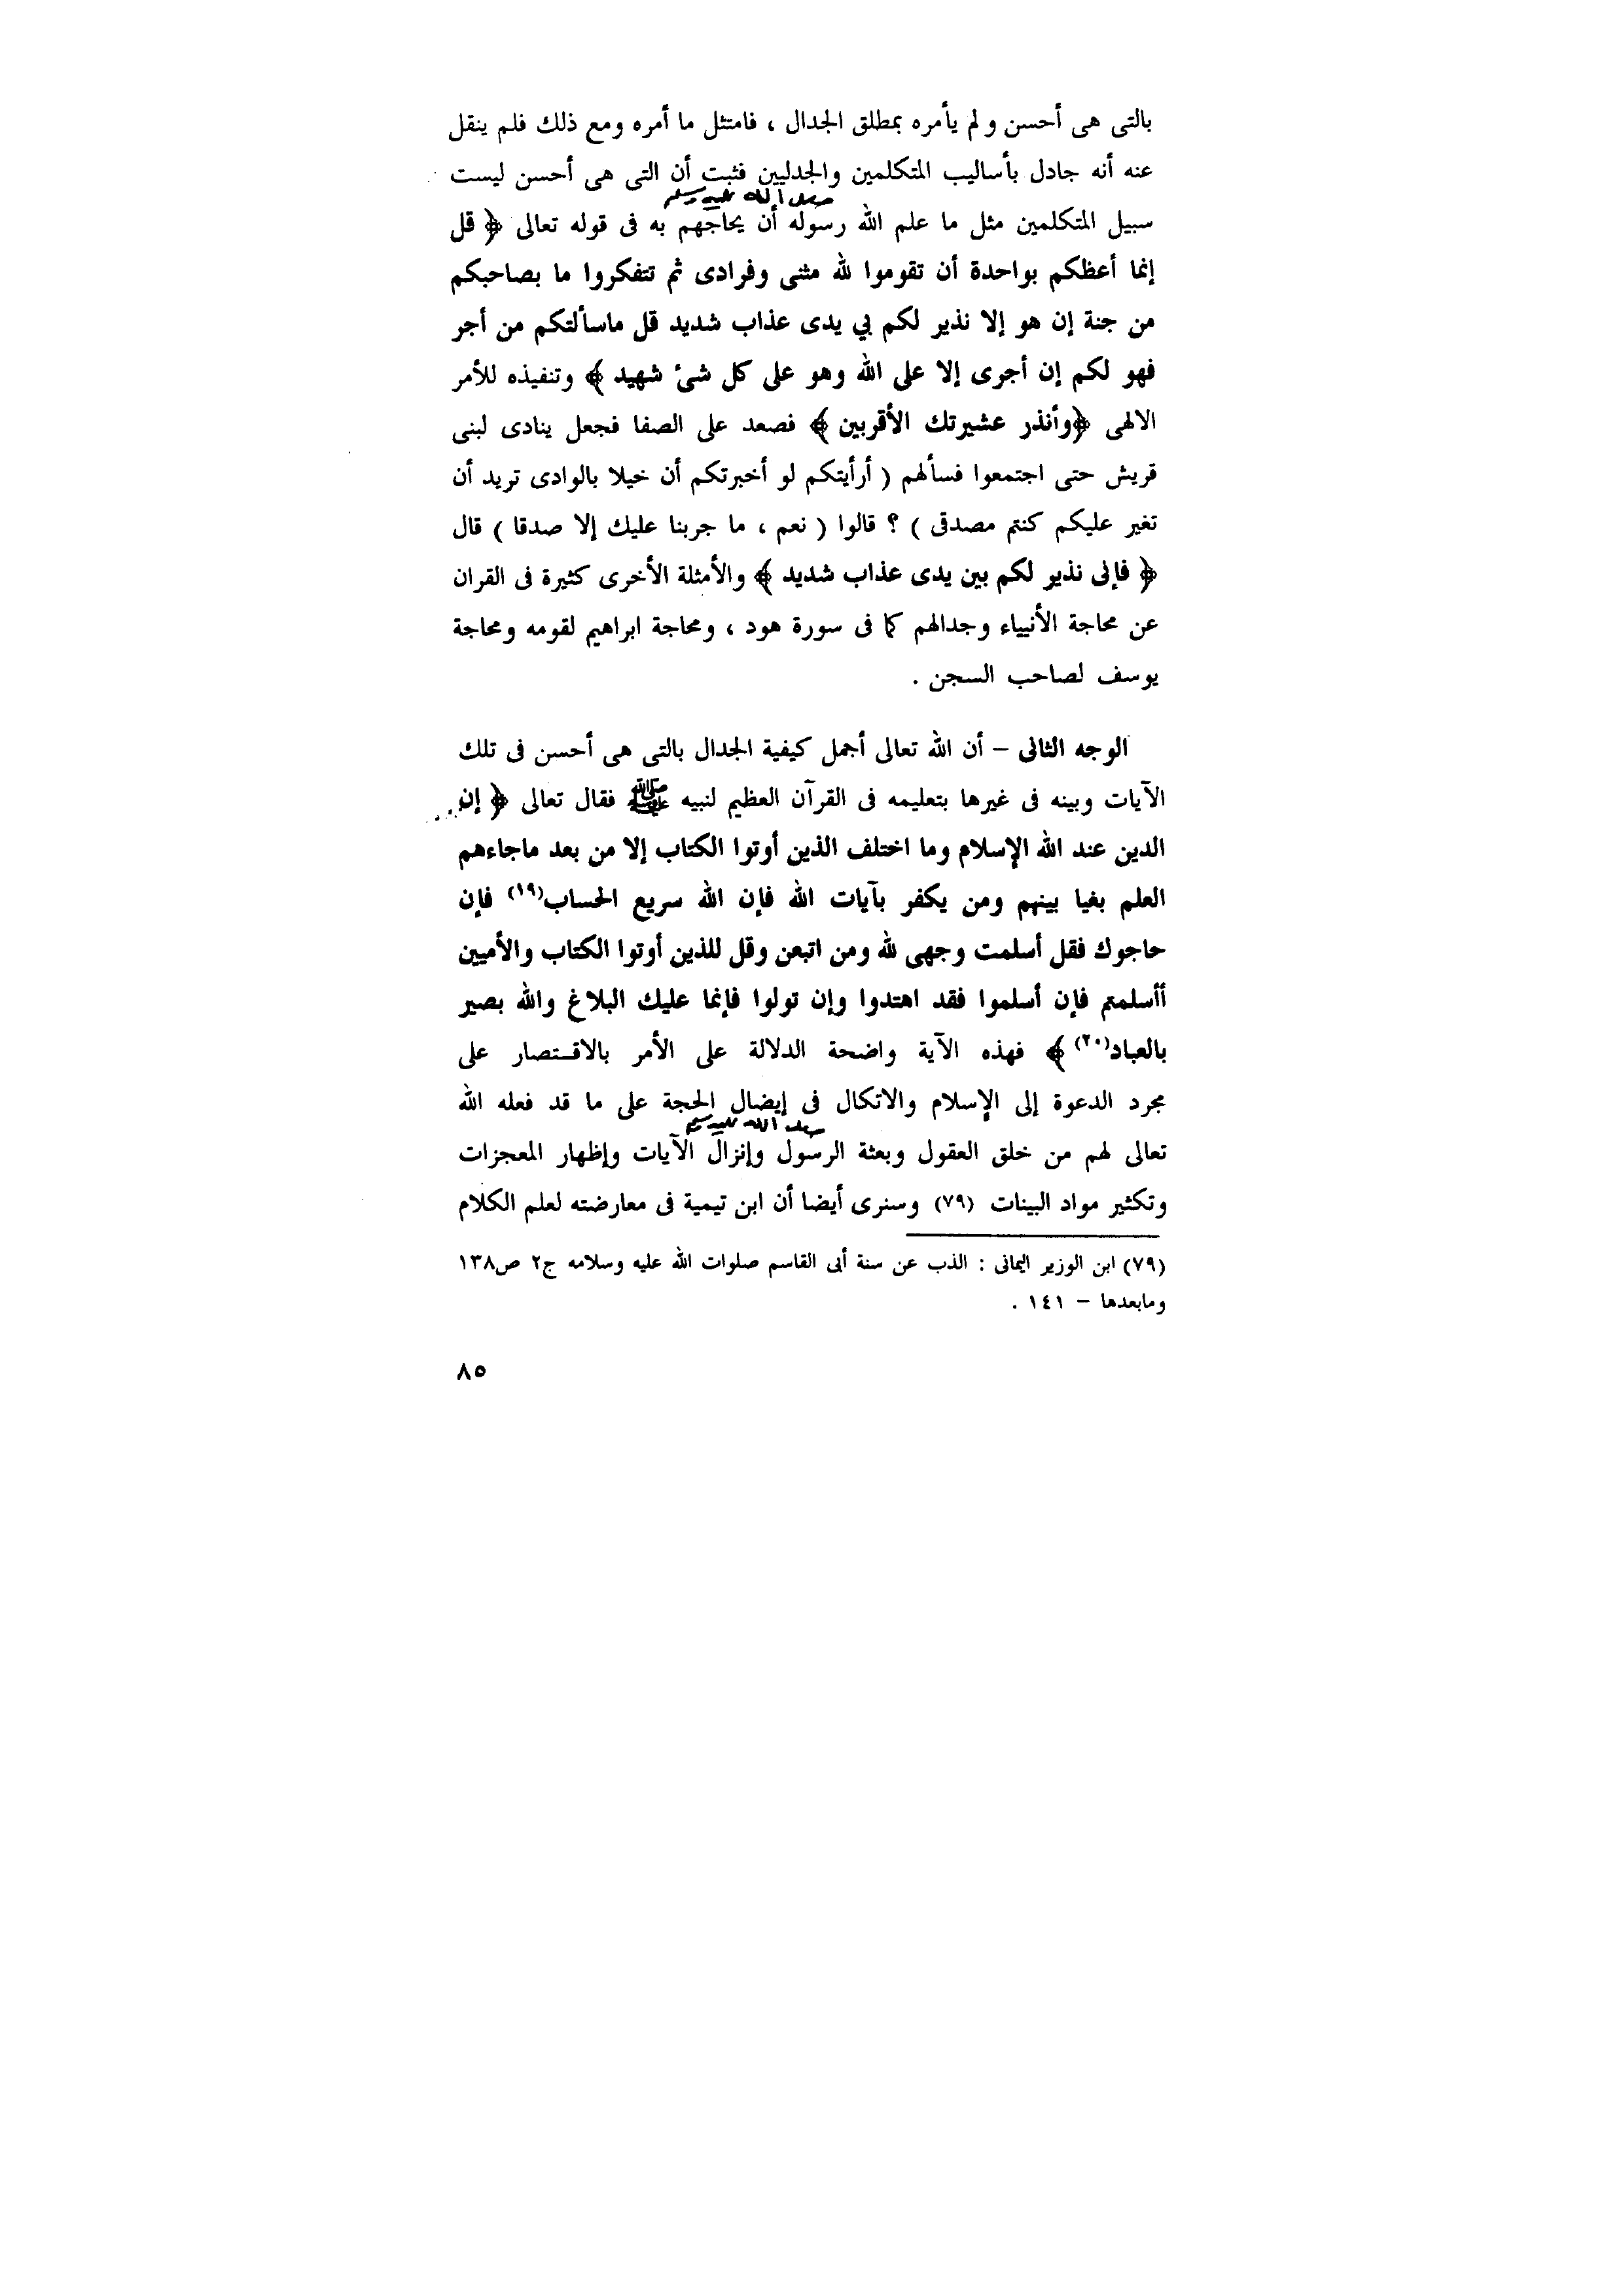 بالتى هى أحسن ولم يأمره بمطلق الجدال ، فامتثل ما أمره ومع ذلك فلم ينقل
عنه أنه جادل بأساليب المتكلمين والجدليين فثبت أن التى هى أحسن ليست
صلى الله عليه وسلم
سبيل المتكلمين مثل ما علم الله رسوله أن يحاجهم به فى قوله تعالى ﴿ قل
إنما أعظكم بواحدة أن تقوموا لله مثنى وفرادى ثم تتفكروا ما بصاحبكم
من جنة إن هو إلا نذير لكم بي يدى عذاب شديد قل ماسألتكم من أجر
فهو لكم إن أجرى إلا على الله وهو على كل شئ شهيد ﴾ وتنفيذه للأمر
الالهى ﴿وأنذر عشيرتك الأقربين ﴾ فصعد على الصفا فجعل ينادى لبنى
قريش حتى اجتمعوا فسألهم ( أرأيتكم لو أخبرتكم أن خيلا بالوادى تريد أن
تغير عليكم كنتم مصدقى ) ؟ قالوا ( نعم ، ما جربنا عليك إلا صدقا ) قال
﴿ فإنى نذير لكم بين يدى عذاب شديد ﴾ والأمثلة الأخرى كثيرة فى القران
عن محاجة الأنبياء وجدالهم كما فى سورة هود ، ومحاجة ابراهيم لقومه ومحاجة
يوسف لصاحب السجن .
الوجه الثانى – أن الله تعالى أجمل كيفية الجدال بالتى هى أحسن فى تلك
الآيات وبينه فى غيرها بتعليمه فى القرآن العظيم لنبيه ﷺ فقال تعالى ﴿ إن
الدين عند الله الإسلام وما اختلف الذين أوتوا الكتاب إلا من بعد ماجاءهم
العلم بغيا بينهم ومن يكفر بآيات الله فإن الله سريع الحساب(١٩) فإن
حاجوك فقل أسلمت وجهى لله ومن اتبعن وقل للذين أوتوا الكتاب والأميين
أأسلمتم فإن أسلموا فقد اهتدوا وإن تولوا فإنما عليك البلاغ والله بصير
بالعباد(٢٠) ﴾ فهذه الآية واضحة الدلالة على الأمر بالاقتصار على
مجرد الدعوة إلى الإسلام والاتكال فى إيضال الحجة على ما قد فعله الله
صلى الله عليه وسلم
تعالى لهم من خلق العقول وبعثة الرسول وإنزال الآيات وإظهار المعجزات
وتكثير مواد البينات (٧٩) وسنرى أيضا أن ابن تيمية فى معارضته لعلم الكلام
(٧٩) ابن الوزير اليمانى : الذب عن سنة أبى القاسم صلوات الله عليه وسلامه ج٢ ص١٣٨
ومابعدها – ١٤١ .
٨٥